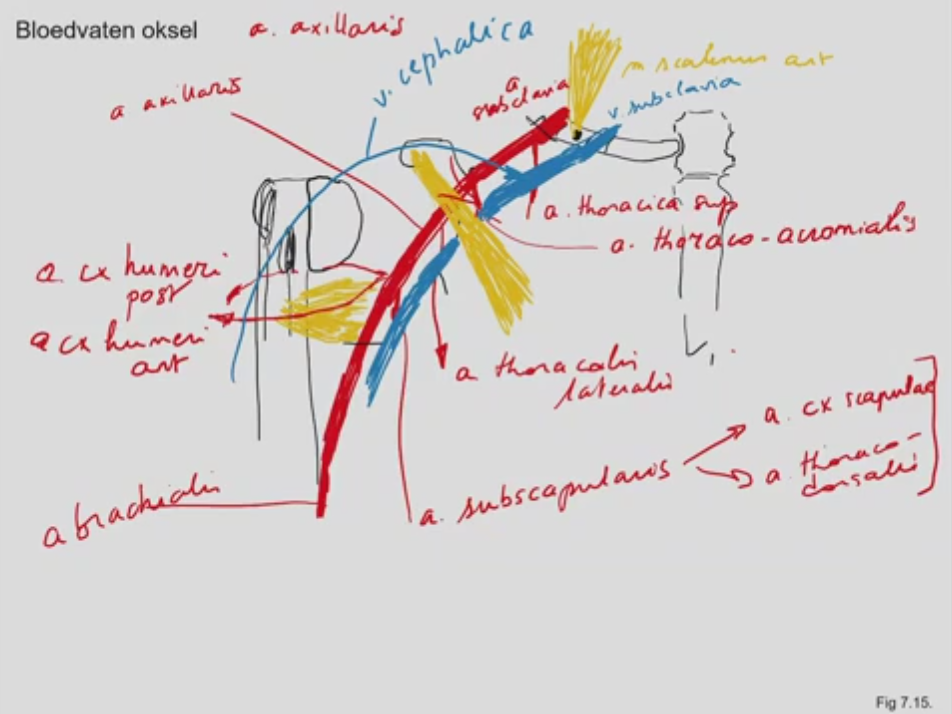 Bloedvaten oksel
a. axillaris
v. cephalica
a axillaris
a subclavia
m scalenus ant
v. subclavia
a. thoracica sup
a. thoraco-acromialis
a. cx humeri
post
a cx humeri
ant
a thoracalis
lateralis
a. cx scapulae
a. subscapularis
a. thoraco-
dorsalis
a brachialis
Fig 7.15.